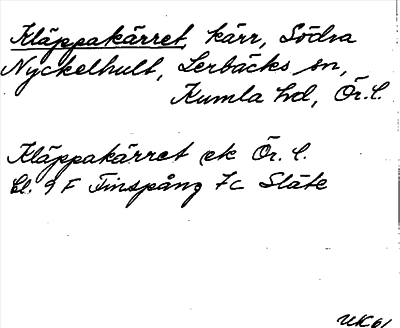 Kläppakärret, kärr, Södra
Nyckelhult, Lerbäcks sn,
Kumla hd, Ör. l.
Kläppakärret ek Ör. l.
bl. 9 F Finspång 7c Släte
UK 61